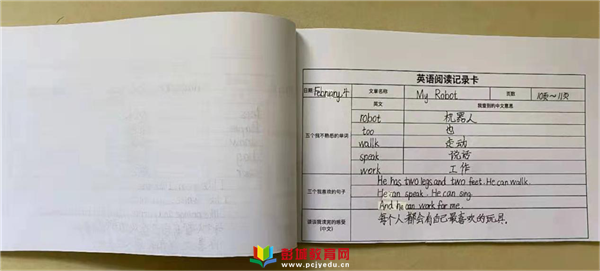 英语阅读记录卡
日期 February 4 文章名称 My Robot 页数 10页~11页
五个我不熟悉的单词 英文 我查到的中文意思
robot 机器人
too 也
wallk 走动
speak 说话
work 工作
三个我喜欢的句子 He has two legs and two feet. He can wallk.
He can speak. He can sing.
And he can work for me.
读后我读完的感受 每个人都会有自己最喜欢的玩具。
(中文)
彭城教育网
www.pcjyedu.cn